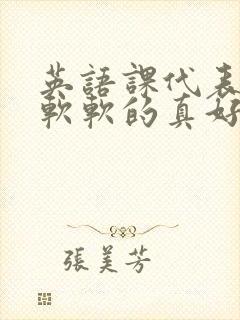 英語課代表
軟軟的真好
張美芳